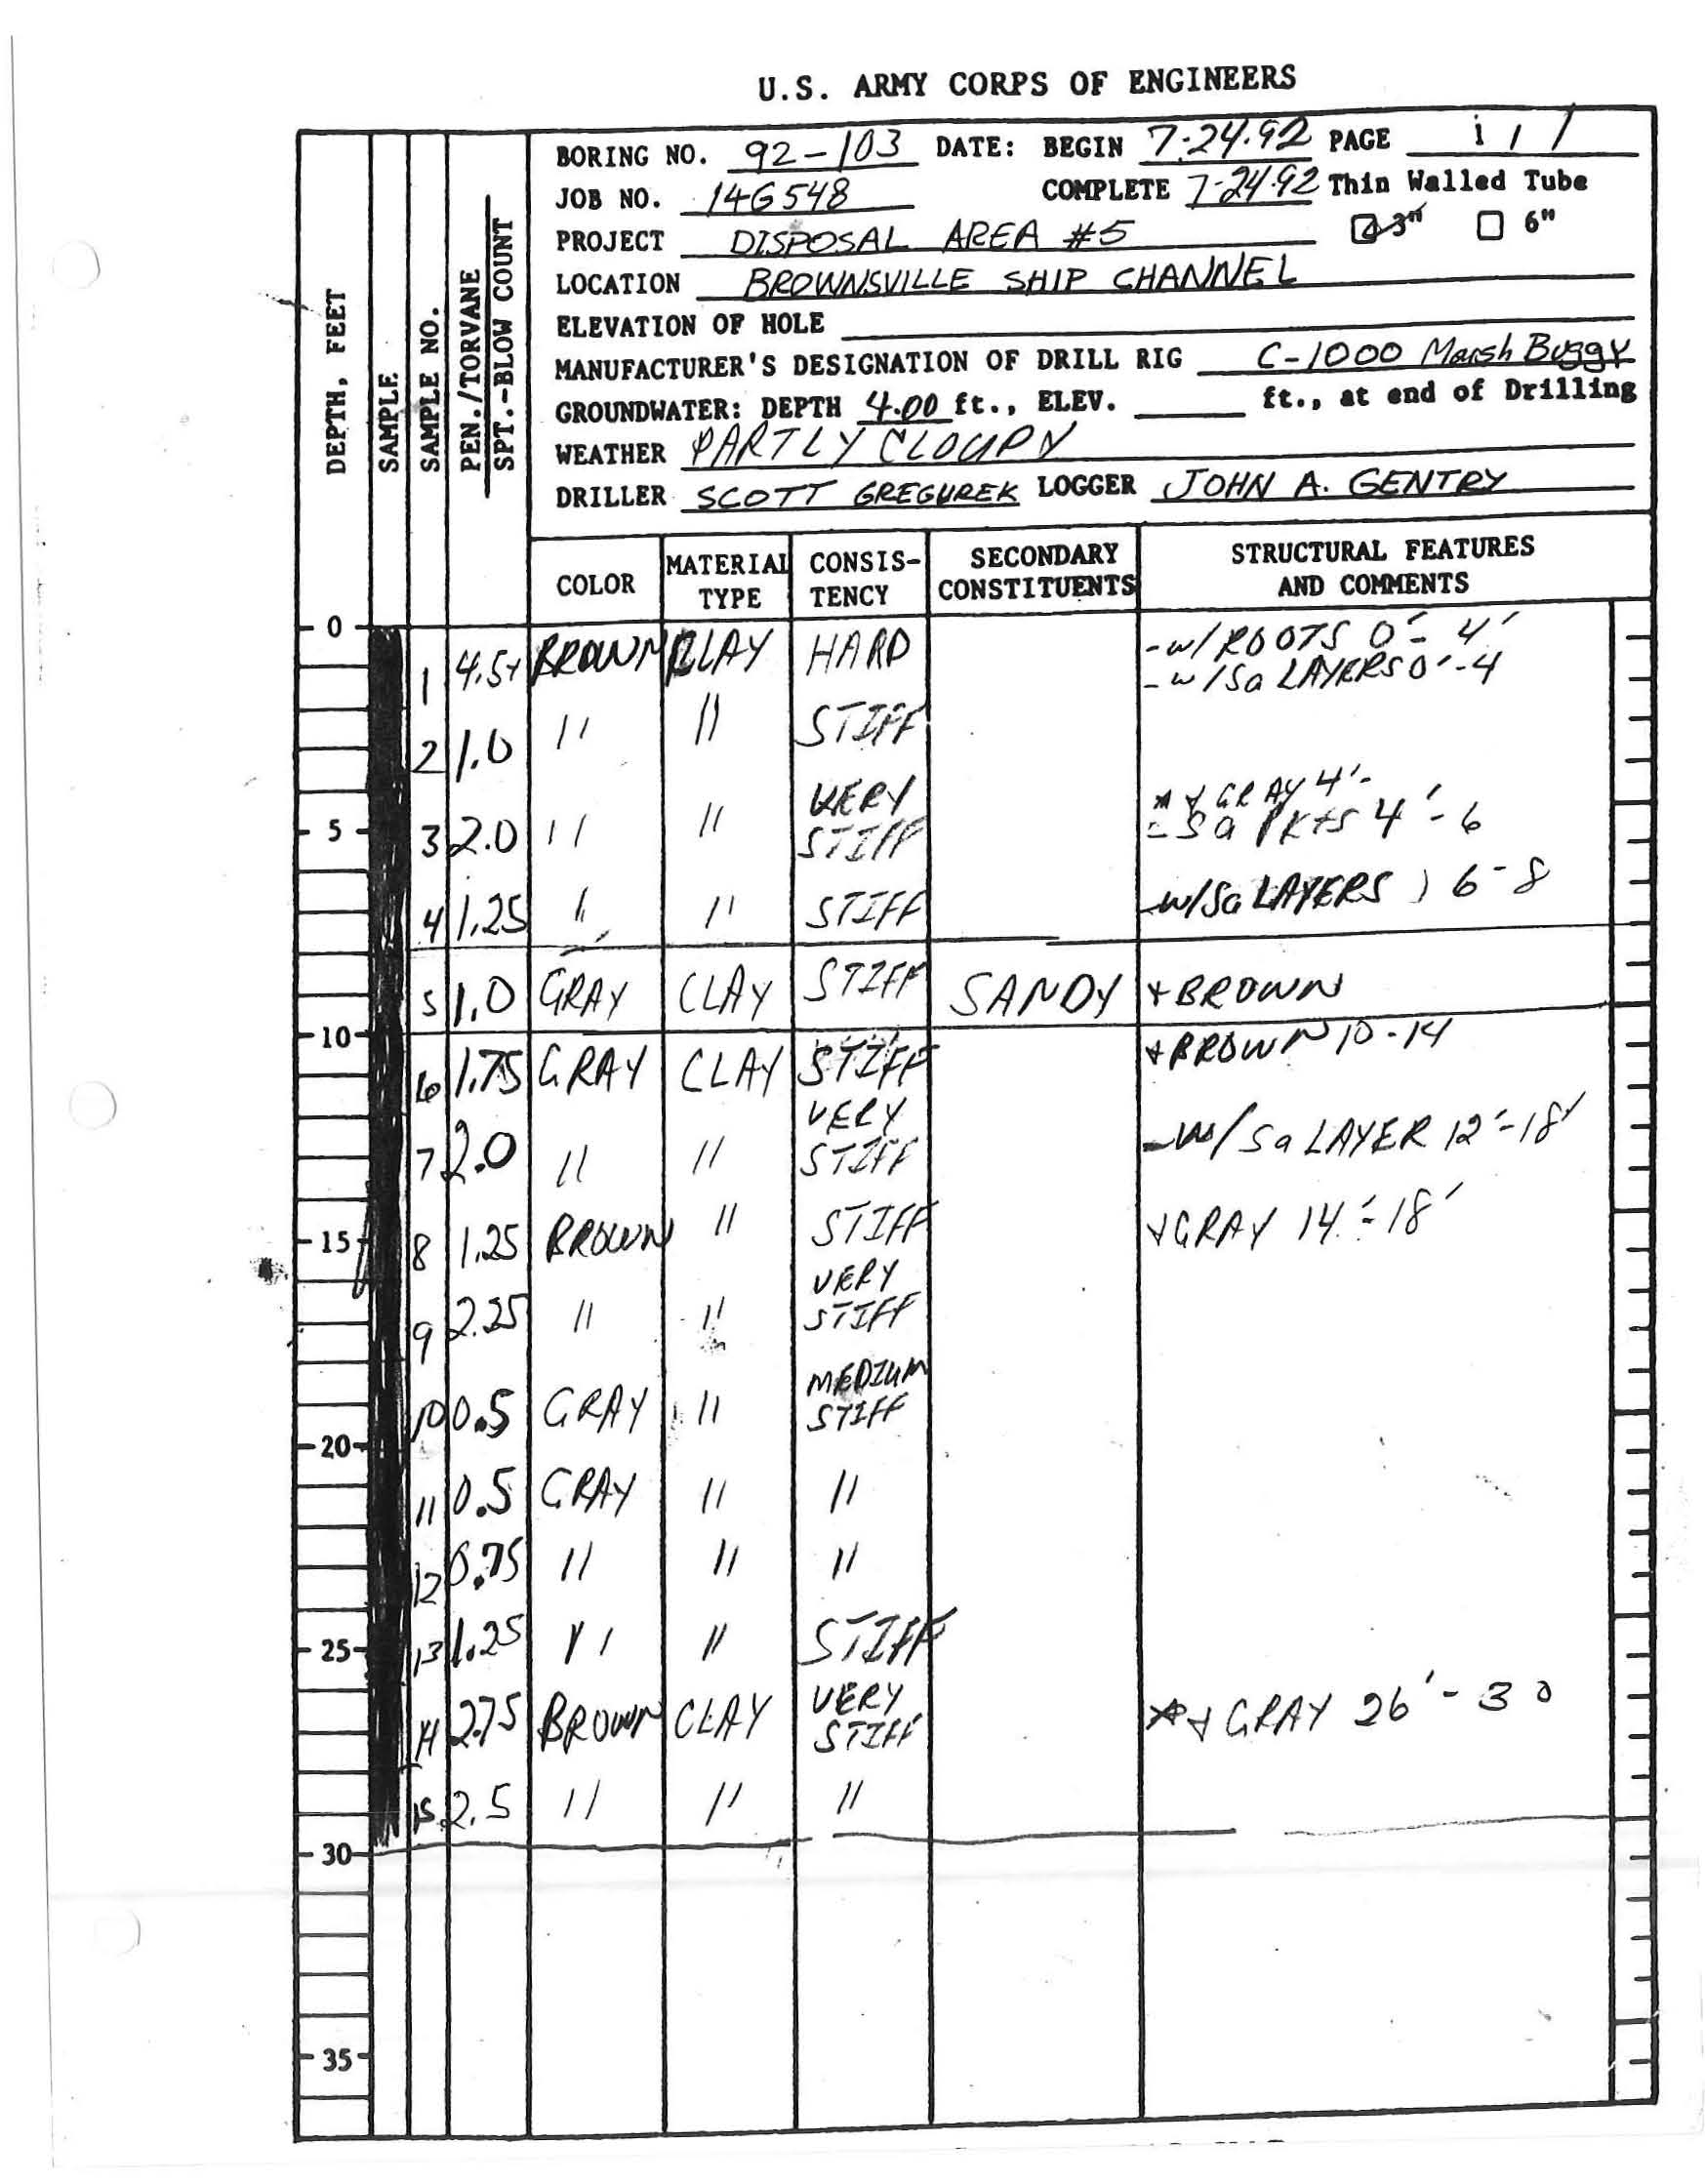 U.S. ARMY CORPS OF ENGINEERS
BORING NO. 92-103 DATE: BEGIN 7-24-92 PAGE 1 / 1
JOB NO. 14G548 COMPLETE 7-24-92 Thin Walled Tube
PROJECT DISPOSAL AREA #5 3" 6"
LOCATION BROWNSVILLE SHIP CHANNEL
ELEVATION OF HOLE
MANUFACTURER'S DESIGNATION OF DRILL RIG C-1000 Marsh Buggy
GROUNDWATER: DEPTH 4.00 ft., ELEV. ft., at end of Drilling
WEATHER PARTLY CLOUDY
DRILLER SCOTT GREGUREK LOGGER JOHN A. GENTRY
DEPTH, FEET
SAMPLE
SAMPLE NO.
PEN./TORVANE
SPT.-BLOW COUNT
COLOR MATERIAL TYPE CONSIS-TENCY SECONDARY CONSTITUENTS STRUCTURAL FEATURES AND COMMENTS
0
1 4.5+ BROWN CLAY HARD -w/ROOTS 0'-4'
-w/Sa LAYERS 0'-4
2 1.0 " " STIFF
5 3 2.0 " " VERY STIFF + GRAY 4'-
- Sa Pkts 4'-6
4 1.25 " " STIFF -w/Sa LAYERS 6-8
5 1.0 GRAY CLAY STIFF SANDY + BROWN
10
6 1.75 GRAY CLAY STIFF + BROWN 10-14
7 2.0 " " VERY STIFF -w/Sa LAYER 12'-18'
15 8 1.25 BROWN " STIFF + GRAY 14'-18'
9 2.25 " " VERY STIFF
10 0.5 GRAY " MEDIUM STIFF
20
11 0.5 GRAY " "
12 0.75 " " "
25 13 1.25 " " STIFF
14 2.75 BROWN CLAY VERY STIFF + GRAY 26'-30
15 2.5 " " "
30
35